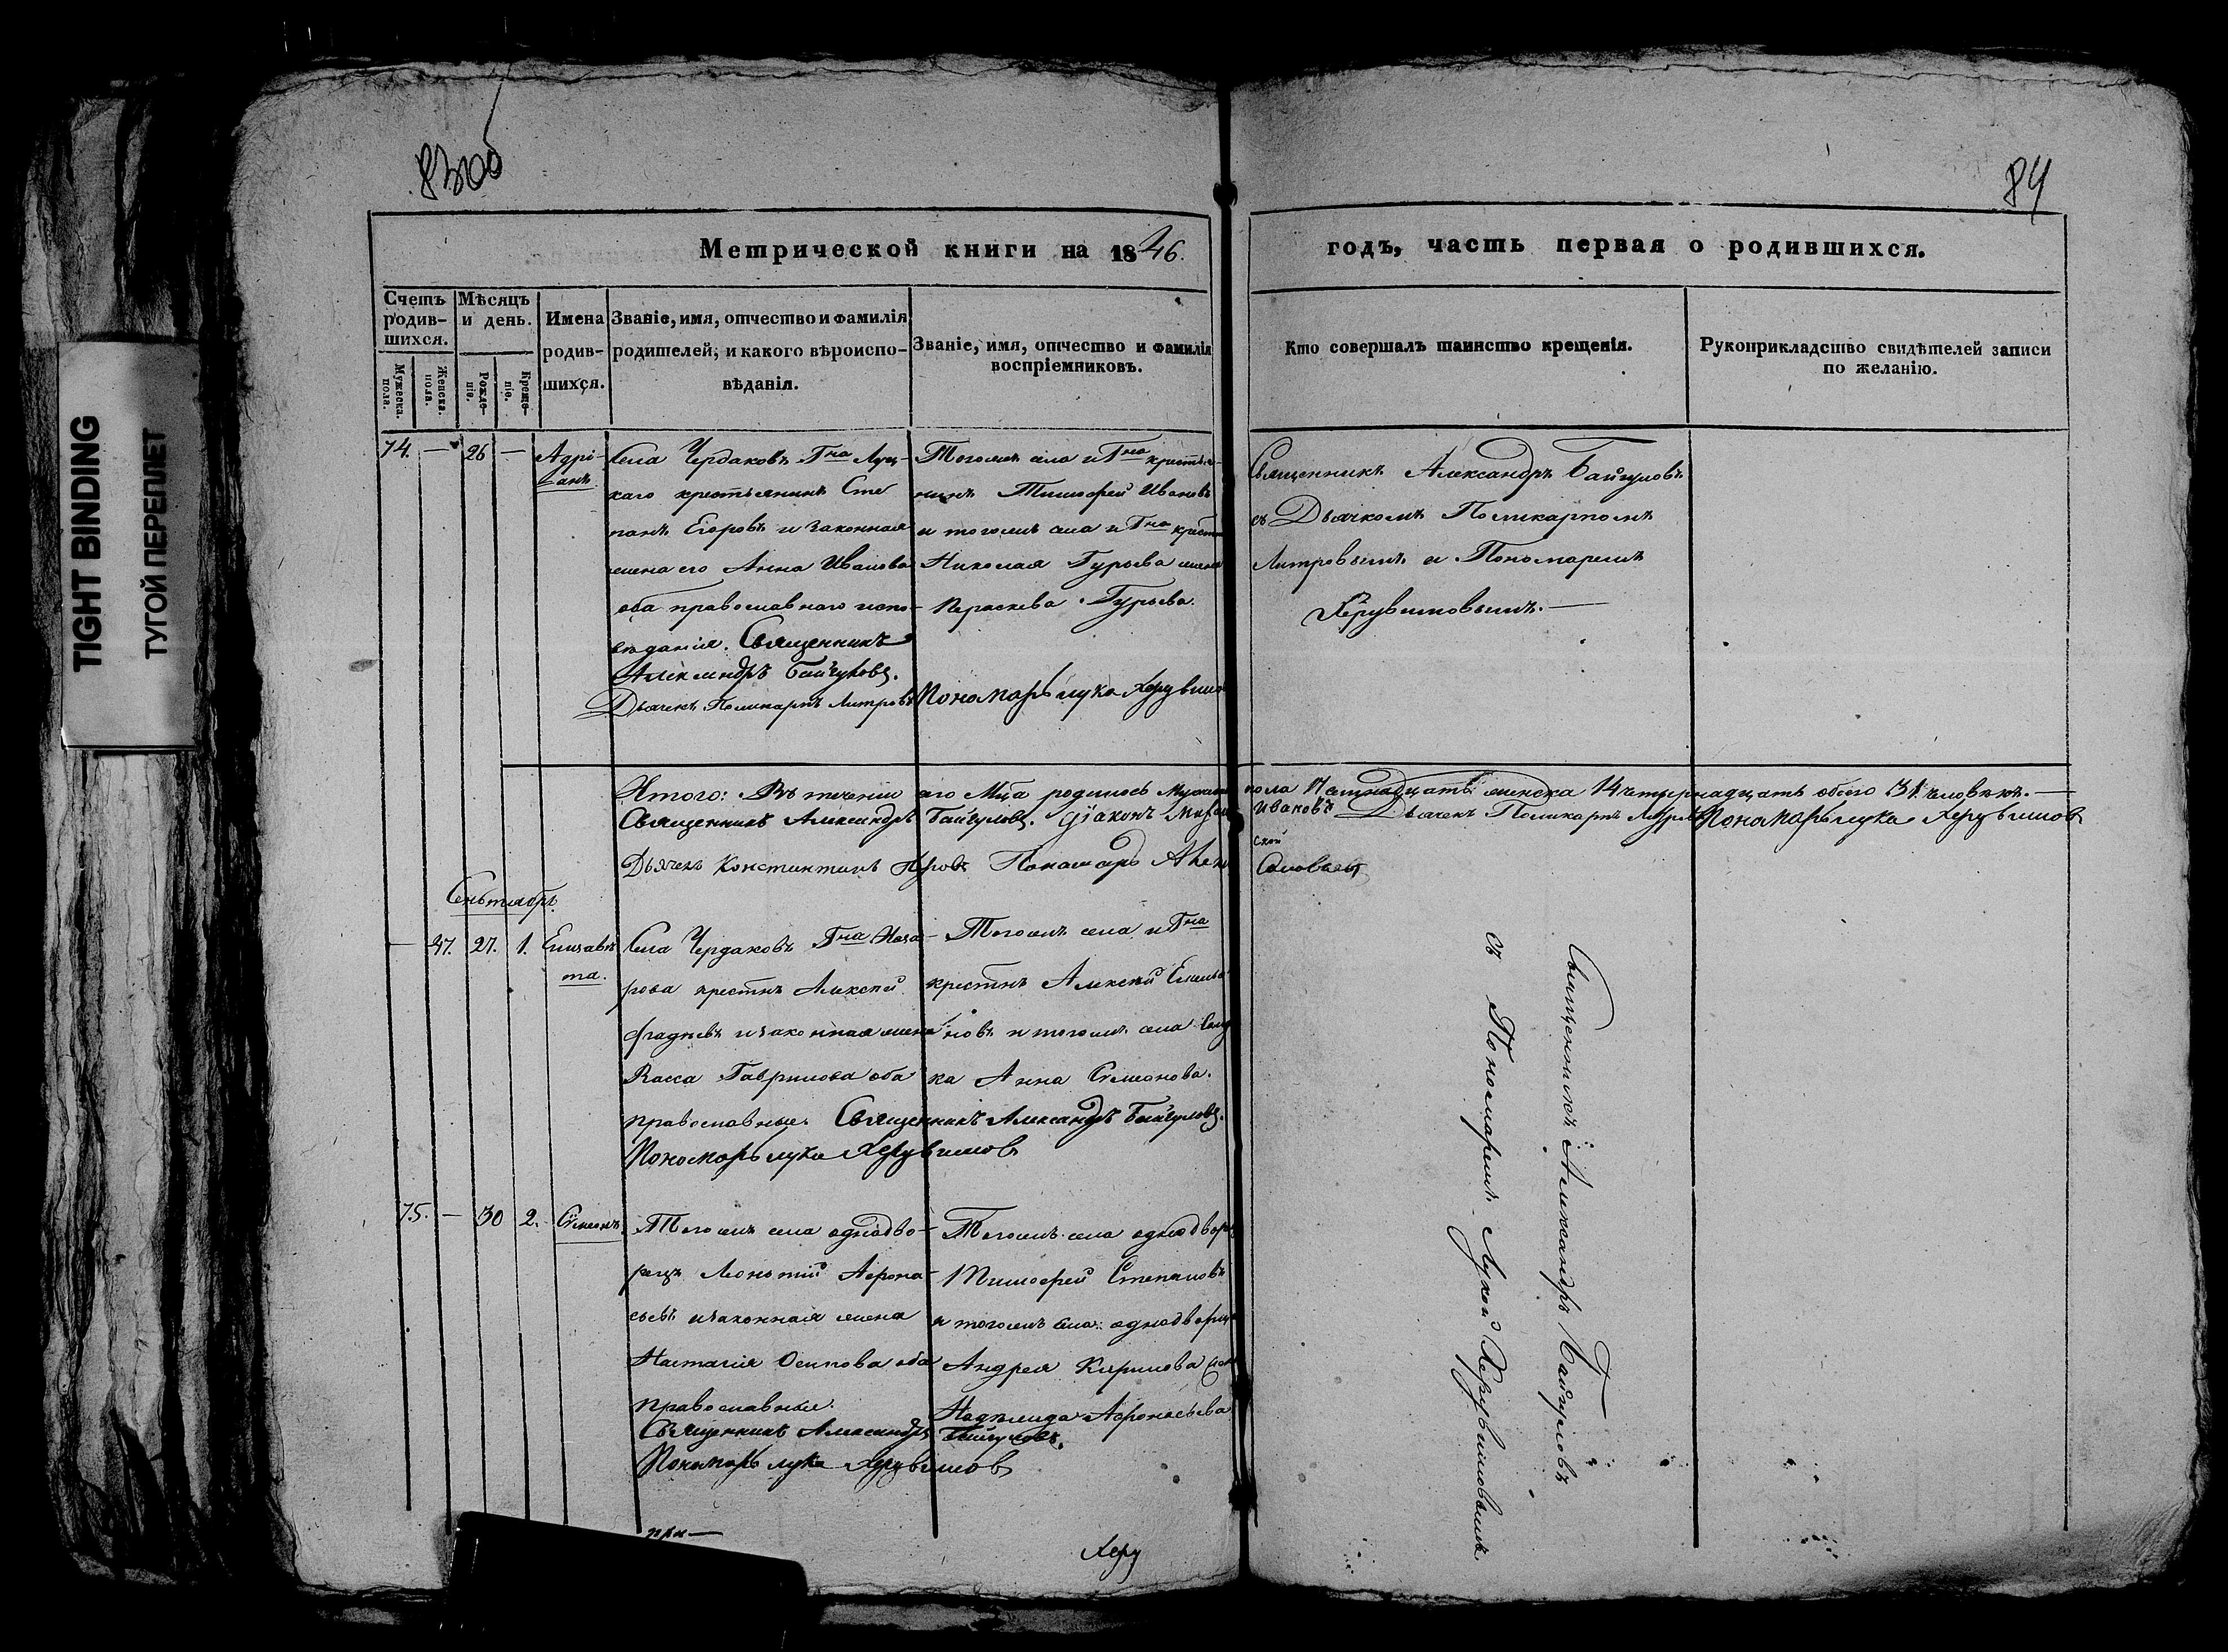 83об
84
TIGHT BINDING
ТУГОЙ ПЕРЕПЛЕТ
Метрической книги на 1846.
годъ, часть первая о родившихся.
Счетъ родив-шихся.
Мужеска. пола.
Женска. пола.
Мѣсяцъ и день.
Рожде-ніе.
Креще-ніе.
Имена родив-шихся.
Званіе, имя, отчество и фамилія родителей, и какого вѣроиспо-вѣданія.
Званіе, имя, отчество и фамилія воспріемниковъ.
Кто совершалъ таинство крещенія.
Рукоприкладство свидѣтелей записи по желанію.
74. — 26 —
Адрі-
анъ.
Села Чердаковъ Гна Луц-
каго крестьянинъ Сте
панъ Егоровъ и законная
жена его Анна Иванова
оба православнаго испо-
вѣданія. Священникъ
Александръ Байгуловъ.
Дьячекъ Поликарпъ Митровъ
Тогоже села и Гна крестья-
нинъ Тимофей Ивановъ
и тогоже села и Гна крест
Николая Гурьева жена
Параскева Гурьева.
Пономарь лука Херувимо
Священникъ Александръ Байгуловъ
съ Дьячкомъ Поликарпомъ
Митровымъ и Пономаремъ
Херувимовымъ. —
Итого: Въ теченіи сего Мца родилось Мужеска пола 17 женска 14 четырнадцать обоего 31 человѣкъ. —
Священникъ Александръ Байгуловъ. Діаконъ Ивановъ Дьячекъ Поликарпъ Пономарь лука Херувимовъ
Дьячекъ Константинъ Пономарь Соловьевъ
Сентябрь.
— 47. 27. 1.
Елизаве
та.
Села Чердаковъ Гна Наза-
рова крестнъ Алексѣй
фадѣевъ и законная жена
Васса Гаврилова оба
православные. Священникъ Александръ Байгуловъ.
Пономарь лука Херувимовъ
Тогожъ села и Гна
крестнъ Алексѣй Емелья
новъ и тогожъ села
ка Анна Симеонова.
75. — 30 2.
Симеонъ.
Тогожъ села однодво-
рецъ Леонтій Афона-
сьевъ и законная жена
Настасія Осипова оба
православные.
Священникъ Александръ Байгуловъ.
Пономарь лука Херувимовъ
Тогожъ села однодворец
Тимофей Степановъ
и тогожъ села однодворца
Андрея Кирилова
Афонасьева
Священникъ Александръ Байгуловъ
съ Пономаремъ Лукой Херувимовымъ.
при—
Херу